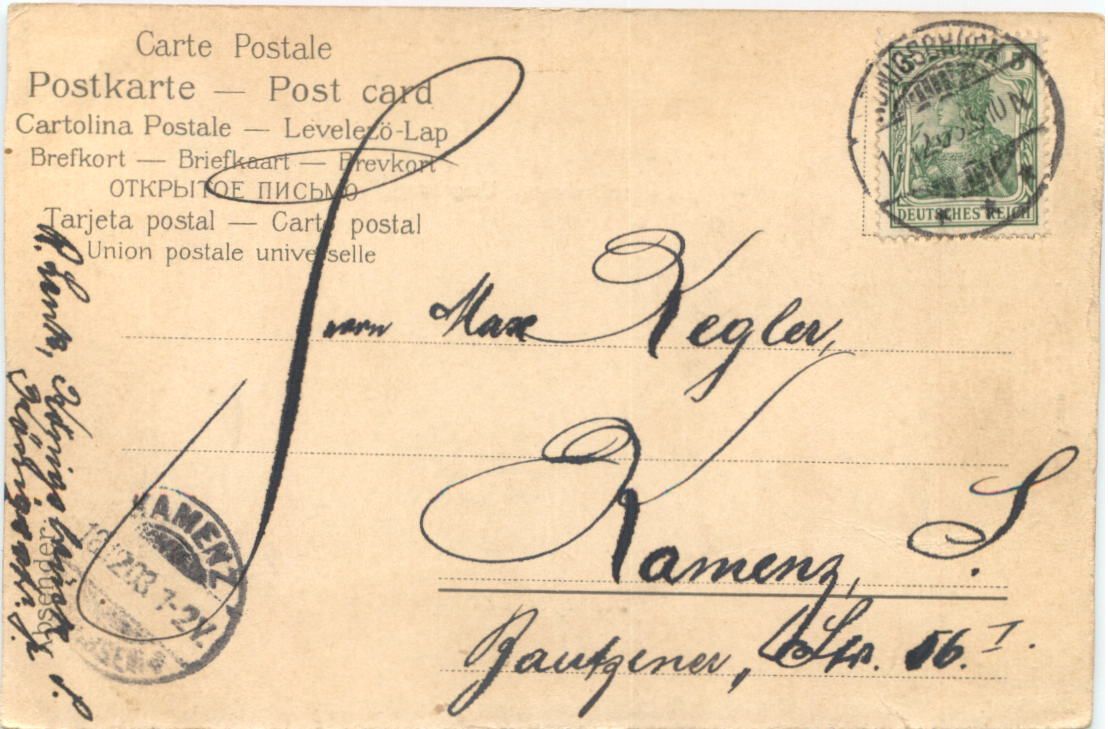 Carte Postale
Postkarte — Post card
Cartolina Postale — Levelező-Lap
Brefkort — Briefkaart — Brevkort
ОТКРЫТОЕ ПИСЬМО
Tarjeta postal — Carta postal
Union postale universelle
DEUTSCHES REICH
Herrn Max Kegler,
Kamenz, S.
Bautzener, Str. 56. I.
KAMENZ
12.03. 1-2V.
Absender:
Königsbrück